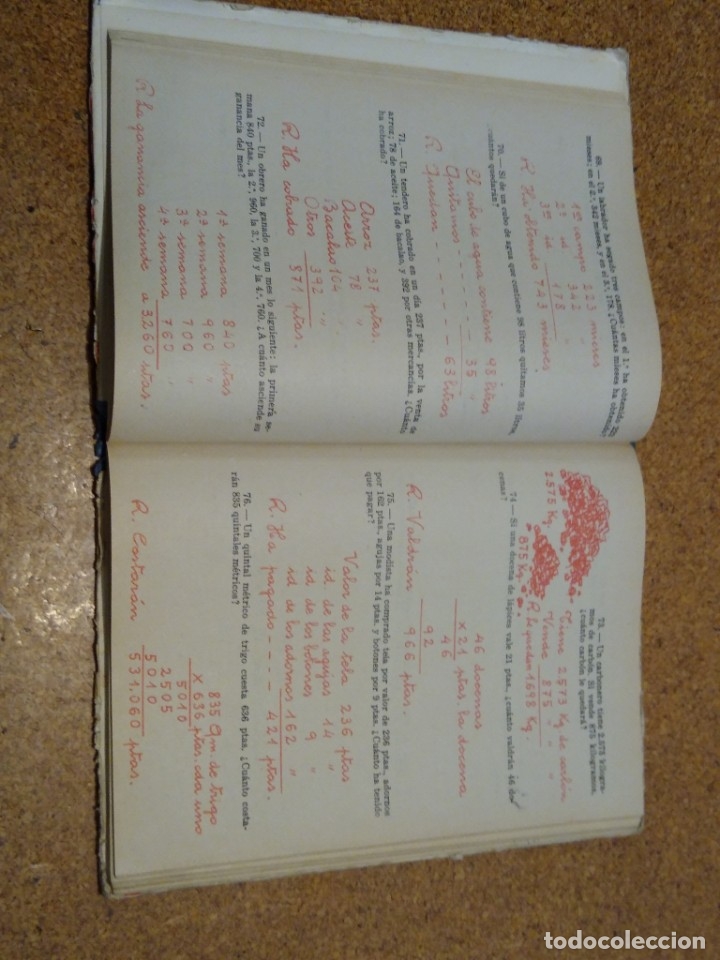 69. — Un labrador ha segado tres campos: en el 1.º ha obtenido 223
mieses; en el 2.º, 342 mieses, y en el 3.º, 178. ¿Cuántas mieses ha obtenido?
1er campo 223 mieses
2º id 342 "
3er id 178 "
R. Ha obtenido 743 mieses
70. — Si de un cubo de agua que contiene 98 litros quitamos 35 litros,
¿cuántos quedarán?
El cubo de agua contiene 98 litros
Quitamos - - - - - - - 35 "
R. Quedan - - - - - - 63 litros
71. — Un tendero ha cobrado en un día 237 ptas., por la venta de
arroz; 78 de aceite; 164 de bacalao, y 392 por otras mercancías. ¿Cuánto
ha cobrado?
Arroz 237 ptas.
Aceite 78 "
Bacalao 164 "
Otros 392 "
R. Ha cobrado 871 ptas.
72. — Un obrero ha ganado en un mes lo siguiente: la primera se-
mana 840 ptas., la 2.ª, 960, la 2.ª, 700 y la 4.ª, 760. ¿A cuánto asciende su
ganancia del mes?
1ª semana 840 ptas
2ª semana 960 "
3ª semana 700 "
4ª semana 760 "
R. La ganancia asciende a 3,260 ptas.
73. — Un carbonero tiene 2.573 kilogra-
mos de carbón. Si vende 875 kilogramos,
¿cuánto carbón le quedará?
2.575 Kg.
875 Kg.
Tiene 2573 Kg de carbón
Vende 875 " "
R. Le quedan 1698 Kg.
74 — Si una docena de lápices vale 21 ptas., ¿cuánto valdrán 46 do-
cenas?
46 docenas
x 21 ptas. la docena
46
92
R. Valdrán 966 ptas.
75. — Una modista ha comprado tela por valor de 236 ptas., adornos
por 162 ptas., agujas por 14 ptas. y botones por 9 ptas. ¿Cuánto ha tenido
que pagar?
Valor de la tela 236 ptas
id. de las agujas 14 "
id de los botones 9 "
id de los adornos 162 "
R. Ha pagado - - - - 421 ptas.
76. — Un quintal métrico de trigo cuesta 636 ptas. ¿Cuánto costa-
rán 835 quintales métricos?
835 Qm de trigo
x 636 ptas. cada uno
5010
2505
5010
R. Costarán 531,060 ptas.
todocoleccion.net